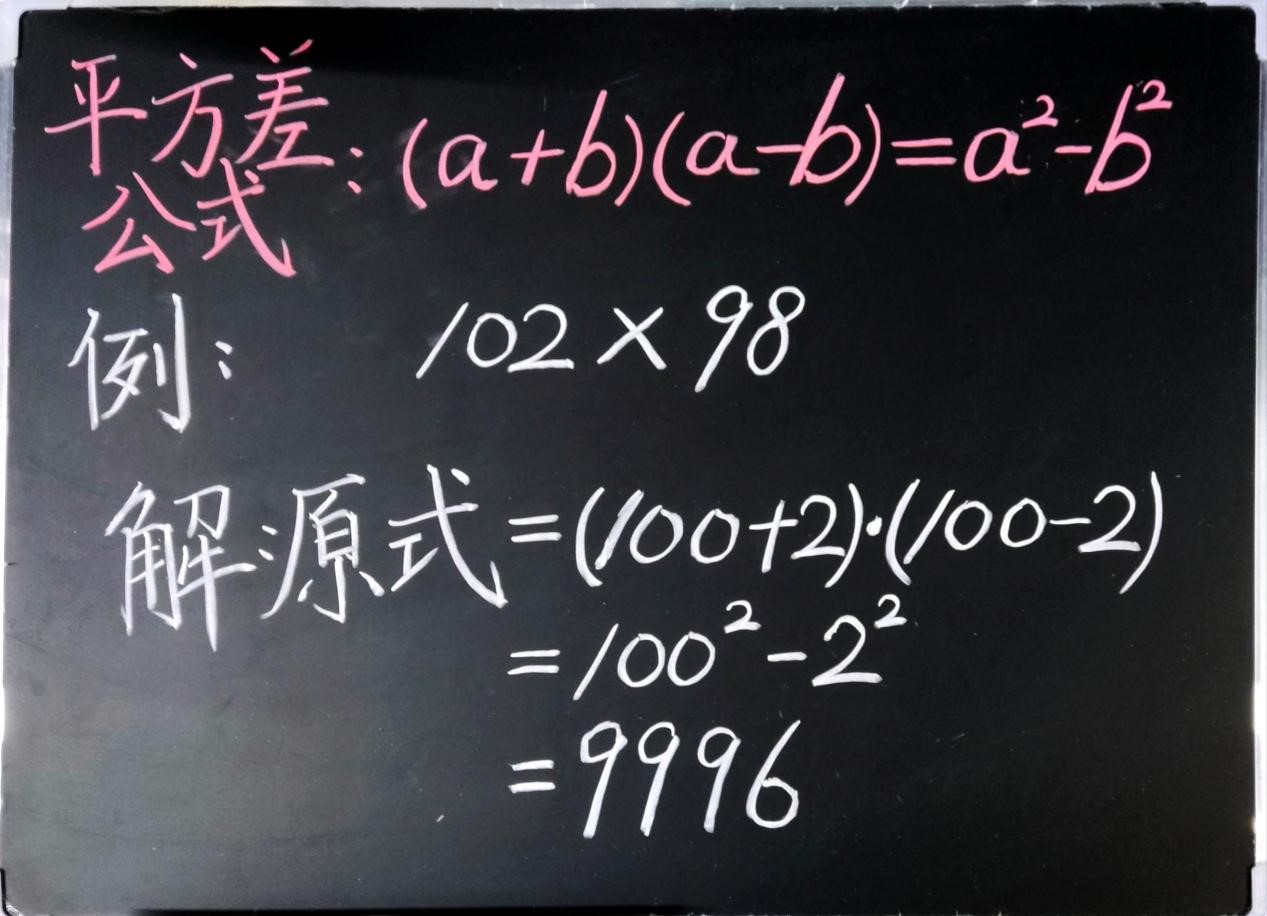 平方差
公式:(a+b)(a-b)=a²-b²
例: 102×98
解源式=(100+2)·(100-2)
=100²-2²
=9996